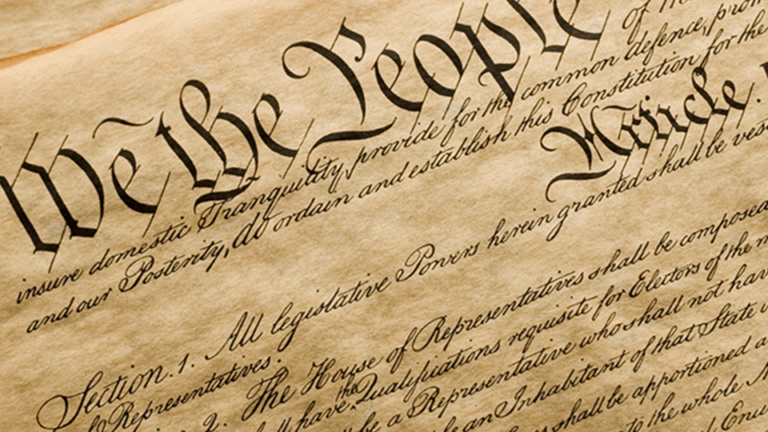 We the People
of
insure domestic Tranquility, provide for the common defence,
and our Posterity, do ordain and establish this Constitution for the
Article.
Section. 1. All legislative Powers herein granted shall be
of Representatives.
2. The House of Representatives shall be composed
shall have the Qualifications requisite for Electors of the
be a Representative who shall not have
an Inhabitant of that State
shall be apportioned
to the whole